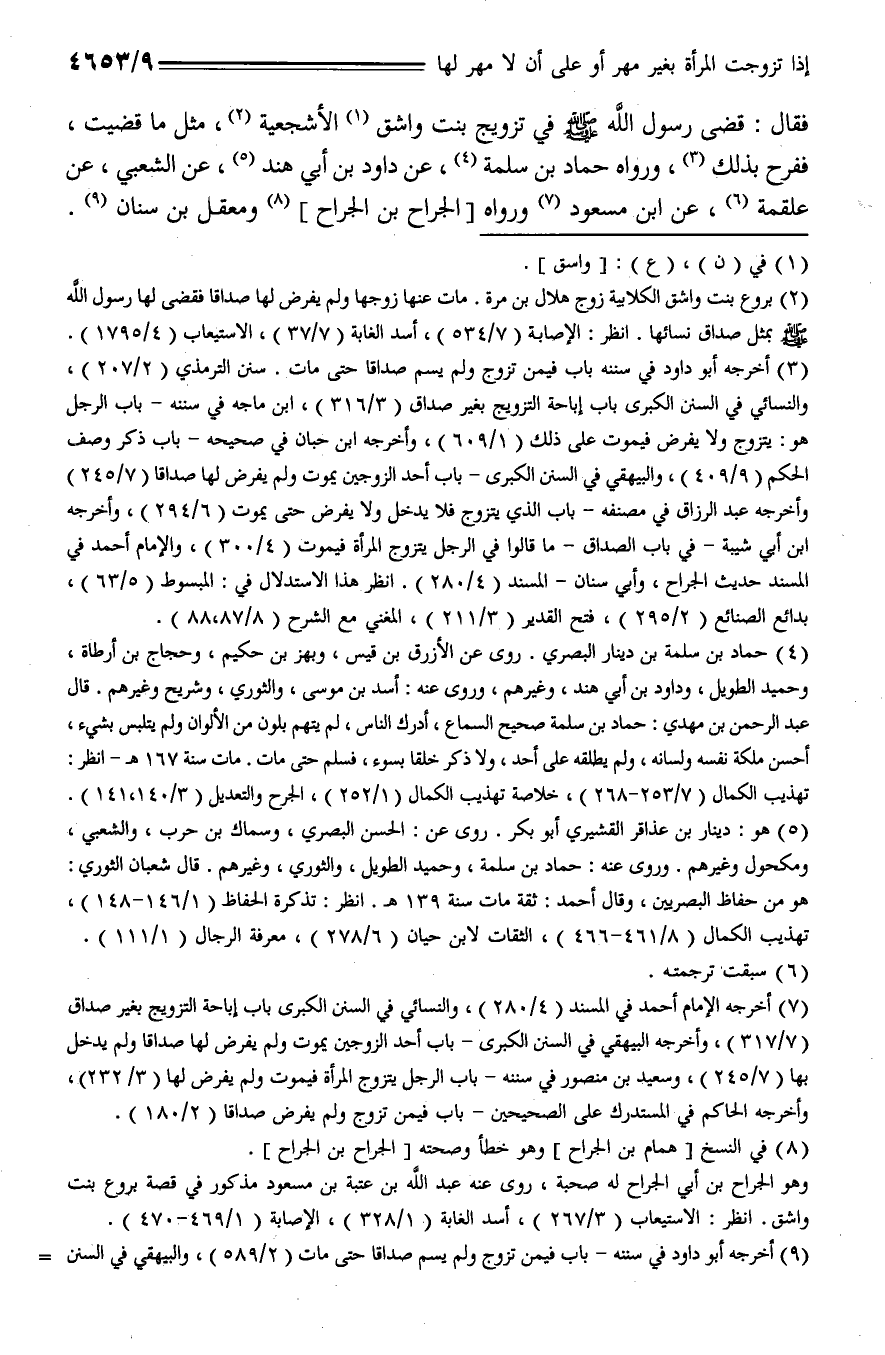 إذا تزوجت المرأة بغير مهر أو على أن لا مهر لها ٤٦٥٣/٩
فقال : قضى رسول اللَّه ﷺ في تزويج بنت واشق (١) الأشجعية (٢) ، مثل ما قضيت ،
ففرح بذلك (٣) ، ورواه حماد بن سلمة (٤) ، عن داود بن أبي هند (٥) ، عن الشعبي ، عن
علقمة (٦) ، عن ابن مسعود (٧) ورواه [ الجراح بن الجراح ] (٨) ومعقـل بن سنان (٩) .
(١) في ( ن ) ، ( ع ) : [ واسق ] .
(٢) بروع بنت واشق الكلابية زوج هلال بن مرة . مات عنها زوجها ولم يفرض لها صداقا فقضى لها رسول اللَّه
ﷺ بمثل صداق نسائها . انظر : الإصابة ( ٥٣٤/٧ ) ، أسد الغابة ( ٣٧/٧ ) ، الاستيعاب ( ١٧٩٥/٤ ) .
(٣) أخرجه أبو داود في سننه باب فيمن تزوج ولم يسم صداقا حتى مات . سنن الترمذي ( ٢٠٧/٢ ) ،
والنسائي في السنن الكبرى باب إباحة التزويج بغير صداق ( ٣١٦/٣ ) ، ابن ماجه في سننه – باب الرجل
هو : يتزوج ولا يفرض فيموت على ذلك ( ٦٠٩/١ ) ، وأخرجه ابن حبان في صحيحه – باب ذكر وصف
الحكم ( ٤٠٩/٩ ) ، والبيهقي في السنن الكبرى – باب أحد الزوجين يموت ولم يفرض لها صداقا ( ٢٤٥/٧ )
وأخرجه عبد الرزاق في مصنفه – باب الذي يتزوج فلا يدخل ولا يفرض حتى يموت ( ٢٩٤/٦ ) ، وأخرجه
ابن أبي شيبة – في باب الصداق – ما قالوا في الرجل يتزوج المرأة فيموت ( ٣٠٠/٤ ) ، والإمام أحمد في
المسند حديث الجراح ، وأبي سنان – المسند ( ٢٨٠/٤ ) . انظر هذا الاستدلال في : المبسوط ( ٦٣/٥ ) ،
بدائع الصنائع ( ٢٩٥/٢ ) ، فتح القدير ( ٢١١/٣ ) ، المغني مع الشرح ( ٨٨،٨٧/٨ ) .
(٤) حماد بن سلمة بن دينار البصري . روى عن الأزرق بن قيس ، وبهز بن حكيم ، وحجاج بن أرطاة ،
وحميد الطويل ، وداود بن أبي هند ، وغيرهم ، وروى عنه : أسد بن موسى ، والثوري ، وشريح وغيرهم . قال
عبد الرحمن بن مهدي : حماد بن سلمة صحيح السماع ، أدرك الناس ، لم يتهم بلون من الألوان ولم يتلبس بشيء ،
أحسن ملكة نفسه ولسانه ، ولم يطلقه على أحد ، ولا ذكر خلقا بسوء ، فسلم حتى مات . مات سنة ١٦٧ هـ – انظر :
تهذيب الكمال ( ٢٥٣/٧–٢٦٨ ) ، خلاصة تهذيب الكمال ( ٢٥٢/١ ) ، الجرح والتعديل ( ١٤١،١٤٠/٣ ) .
(٥) هو : دينار بن عذاقر القشيري أبو بكر . روى عن : الحسن البصري ، وسماك بن حرب ، والشعبي ،
ومكحول وغيرهم . وروى عنه : حماد بن سلمة ، وحميد الطويل ، والثوري ، وغيرهم . قال شعبان الثوري :
هو من حفاظ البصريين ، وقال أحمد : ثقة مات سنة ١٣٩ هـ . انظر : تذكرة الحفاظ ( ١٤٦/١–١٤٨ ) ،
تهذيب الكمال ( ٤٦١/٨–٤٦٦ ) ، الثقات لابن حيان ( ٢٧٨/٦ ) ، معرفة الرجال ( ١١١/١ ) .
(٦) سبقت ترجمته .
(٧) أخرجه الإمام أحمد في المسند ( ٢٨٠/٤ ) ، والنسائي في السنن الكبرى باب إباحة التزويج بغير صداق
( ٣١٧/٧ ) ، وأخرجه البيهقي في السنن الكبرى – باب أحد الزوجين يموت ولم يفرض لها صداقا ولم يدخل
بها ( ٢٤٥/٧ ) ، وسعيد بن منصور في سننه – باب الرجل يتزوج المرأة فيموت ولم يفرض لها ( ٢٣٢/٣) ،
وأخرجه الحاكم في المستدرك على الصحيحين – باب فيمن تزوج ولم يفرض صداقا ( ١٨٠/٢ ) .
(٨) في النسخ [ همام بن الجراح ] وهو خطأ وصحته [ الجراح بن الجراح ] .
وهو الجراح بن أبي الجراح له صحبة ، روى عنه عبد اللَّه بن عتبة بن مسعود مذكور في قصة بروع بنت
واشق . انظر : الاستيعاب ( ٢٦٧/٣ ) ، أسد الغابة ( ٣٢٨/١ ) ، الإصابة ( ٤٦٩/١–٤٧٠ ) .
(٩) أخرجه أبو داود في سننه – باب فيمن تزوج ولم يسم صداقا حتى مات ( ٥٨٩/٢ ) ، والبيهقي في السنن =